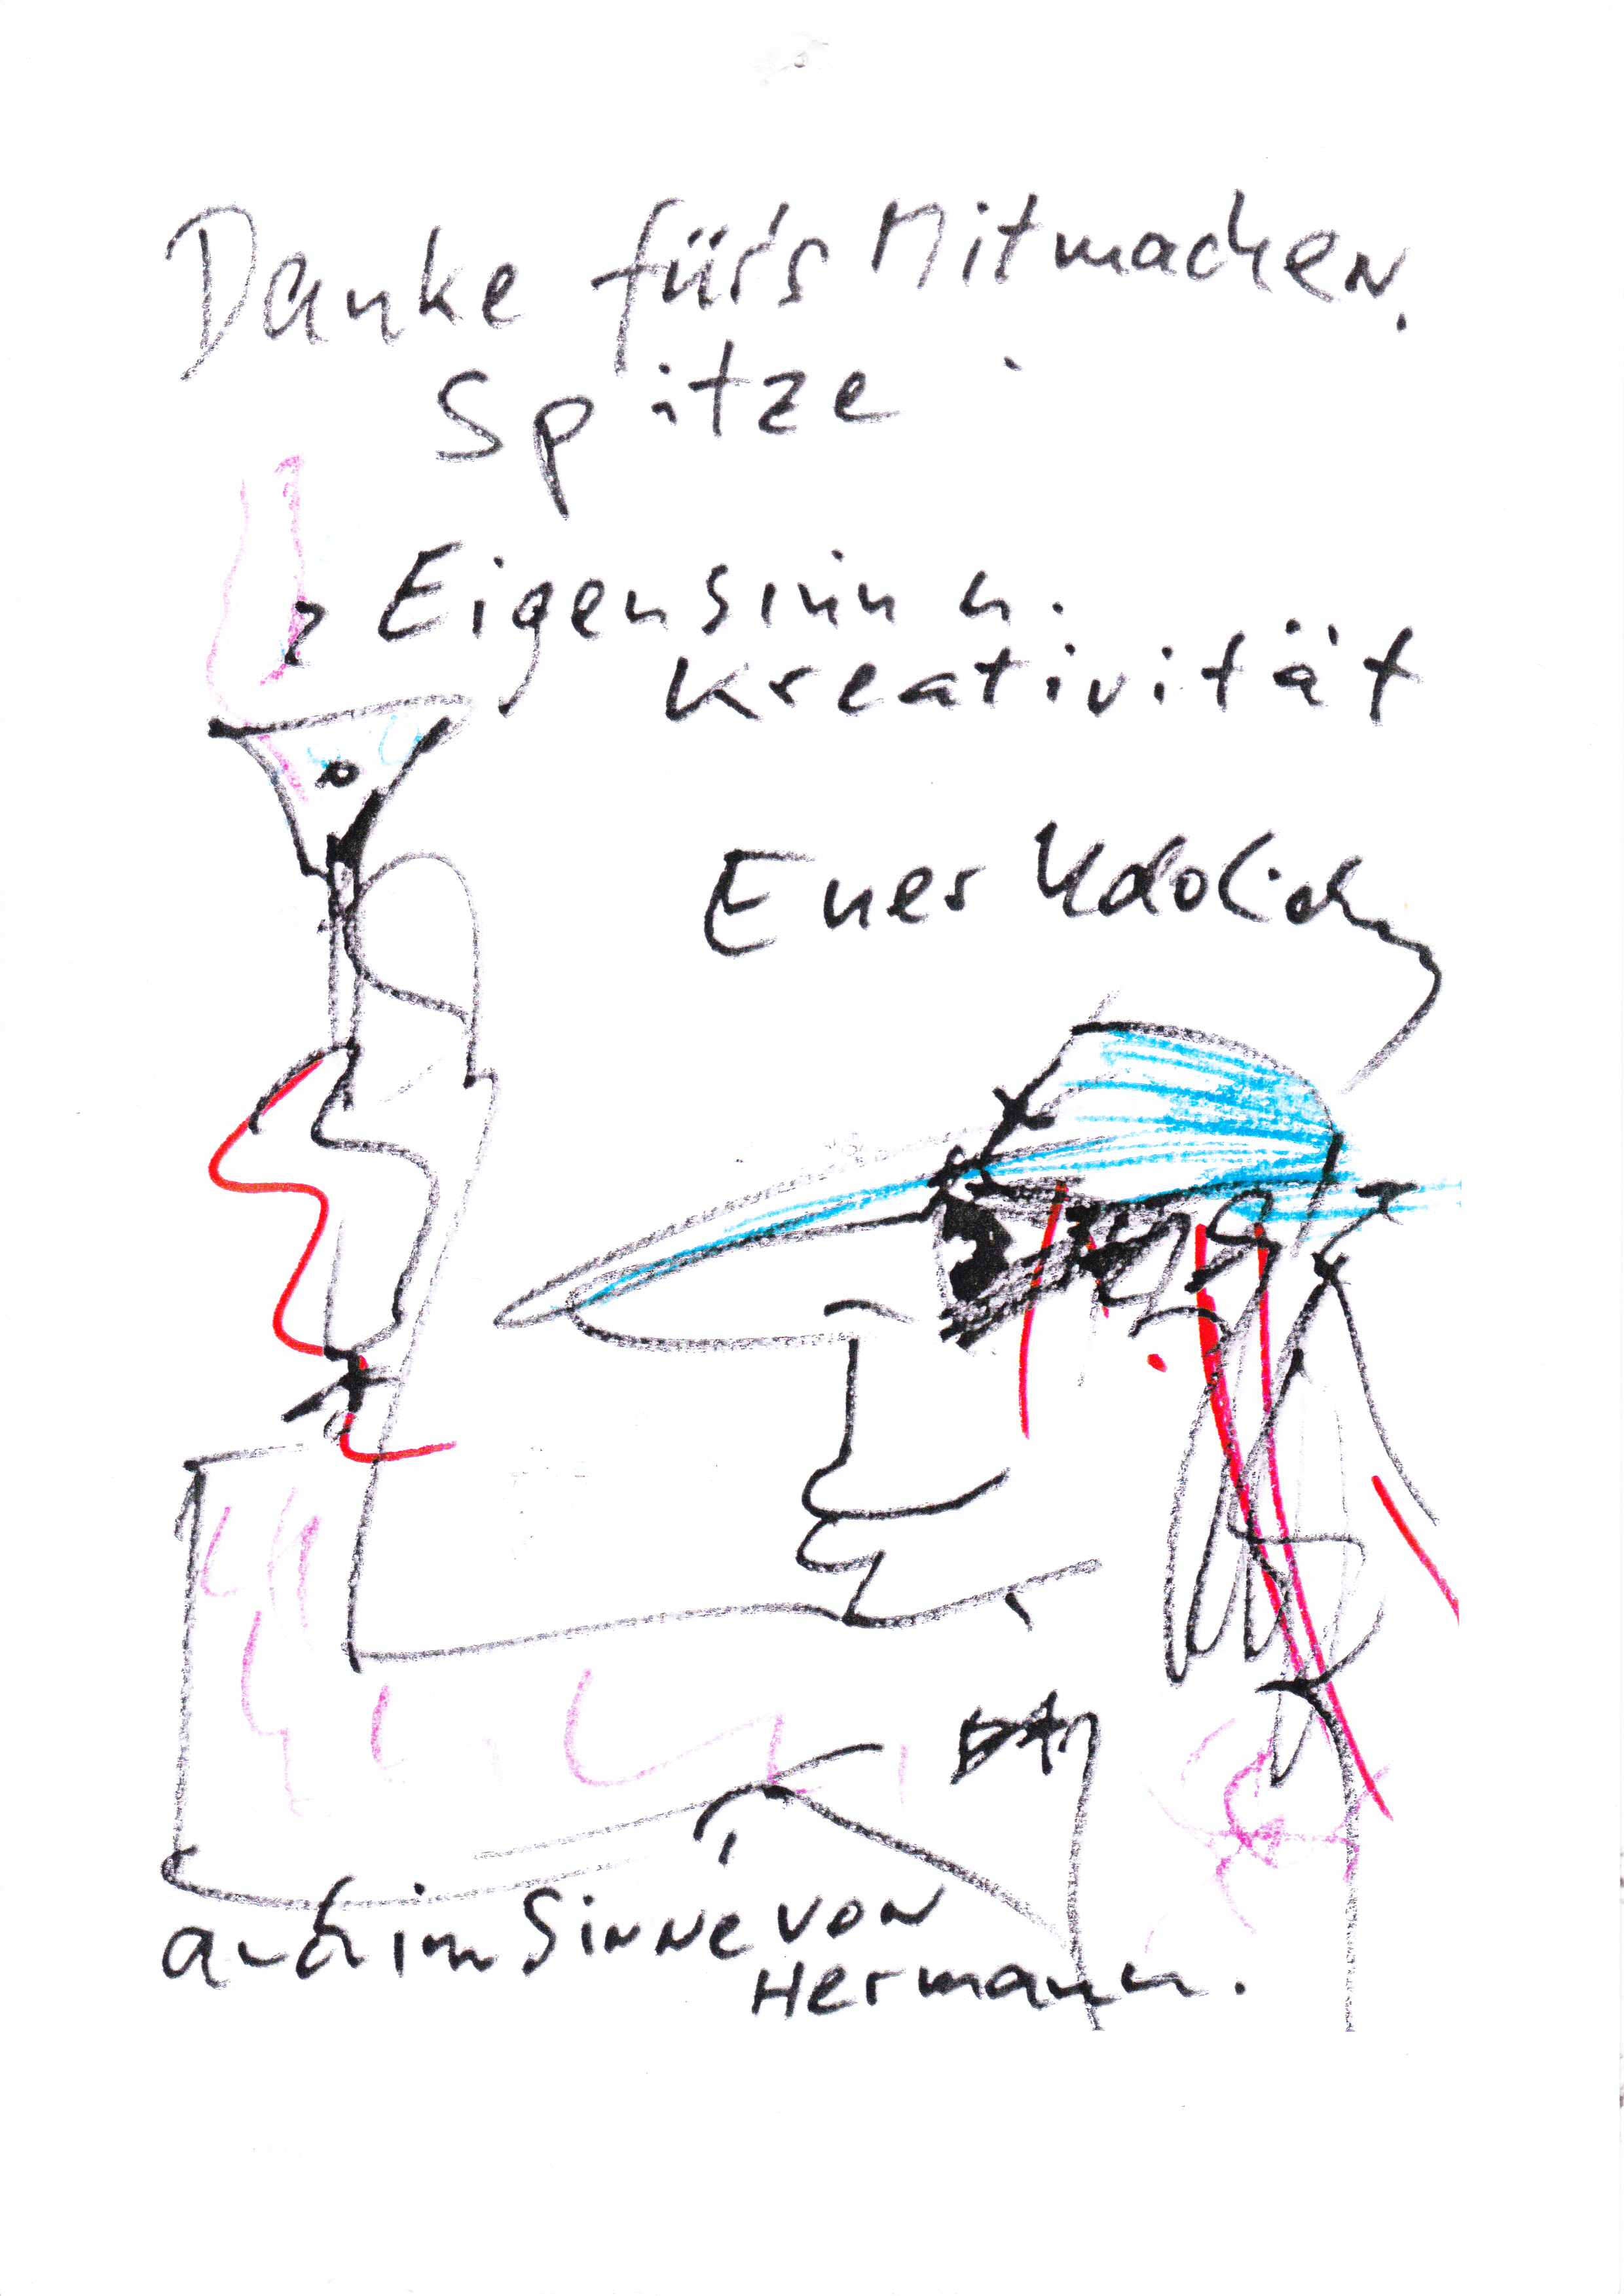 Danke für's Mitmachen.
Spitze
Eigensinn u.
Kreativität
Euer Udolich
auch im Sinne von
Hermann.